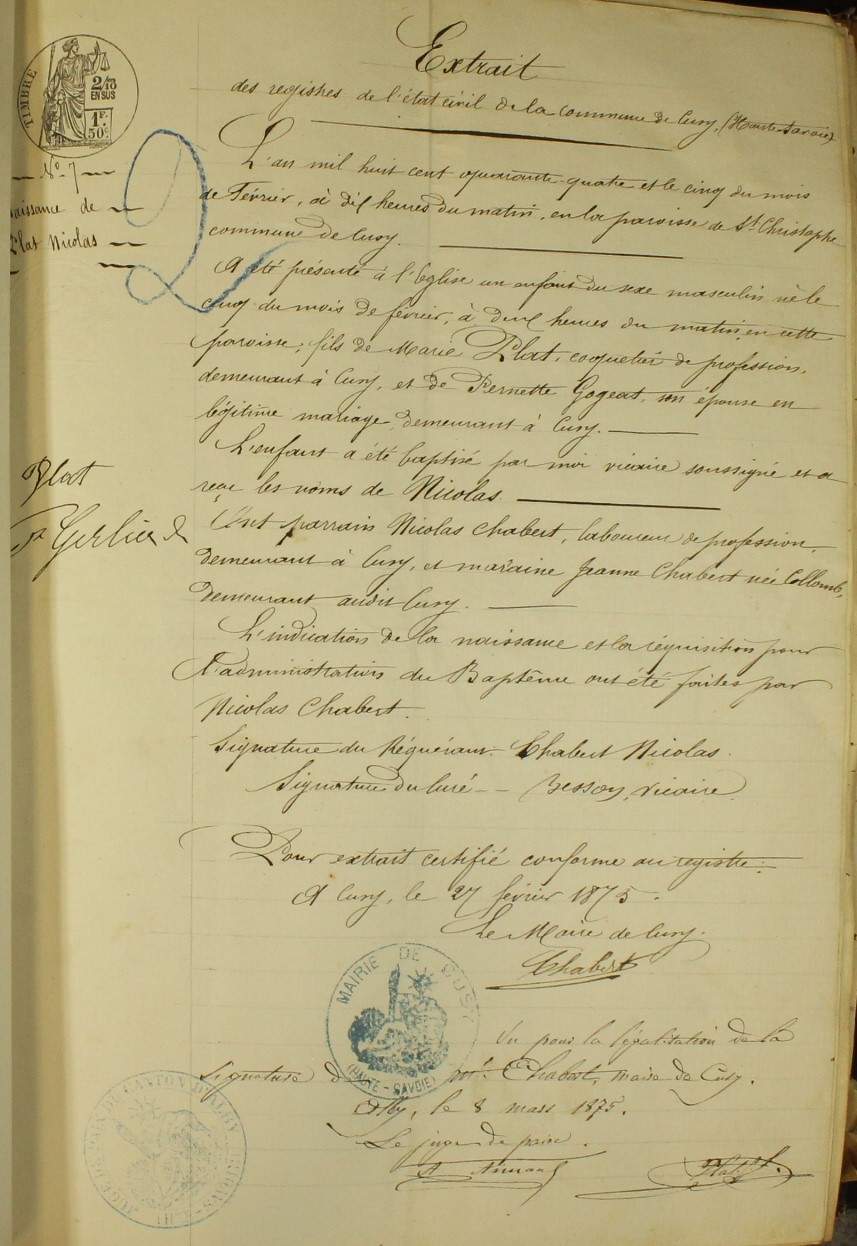 Extrait
des registres de l'état civil de la commune de Cusy, (Haute-Savoie)
TIMBRE
2/10
EN SUS
1F.
50c.
No. 7
Naissance de
Plat Nicolas
2
L'an mil huit cent quarante-quatre et le cinq du mois
de Février, à dix heures du matin, en la paroisse de St. Christophe
commune de Cusy.
A été présenté à l'église un enfant du sexe masculin né le
cinq du mois de février, à deux heures du matin, en cette
paroisse, fils de Marie Plat, coquetier de profession,
demeurant à Cusy, et de Pernette Gogeat, son épouse en
légitime mariage, demeurant à Cusy.
L'enfant a été baptisé par moi vicaire soussigné et a
reçu les noms de Nicolas.
Plat
Gerlier
Ont parrain Nicolas Chabert, laboureur de profession,
demeurant à Cusy, et maraine Jeanne Chabert née Collomb,
demeurant audit Cusy.
L'indication de la naissance et la réquisition pour
l'administration du Baptême ont été faites par
Nicolas Chabert.
Signature du Réquérant. Chabert Nicolas.
Signature du Curé -- Besson, vicaire.
Pour extrait certifié conforme au registre:
A Cusy, le 27 février 1875.
Le Maire de Cusy.
Chabert
MAIRIE DE CUSY
(HAUTE-SAVOIE)
Vu pour la législation de la
signature de Mr. Chabert, maire de Cusy.
Alby, le 8 mars 1875.
Le juge de paix.
JUGE DE PAIX DU CANTON D'ALBY